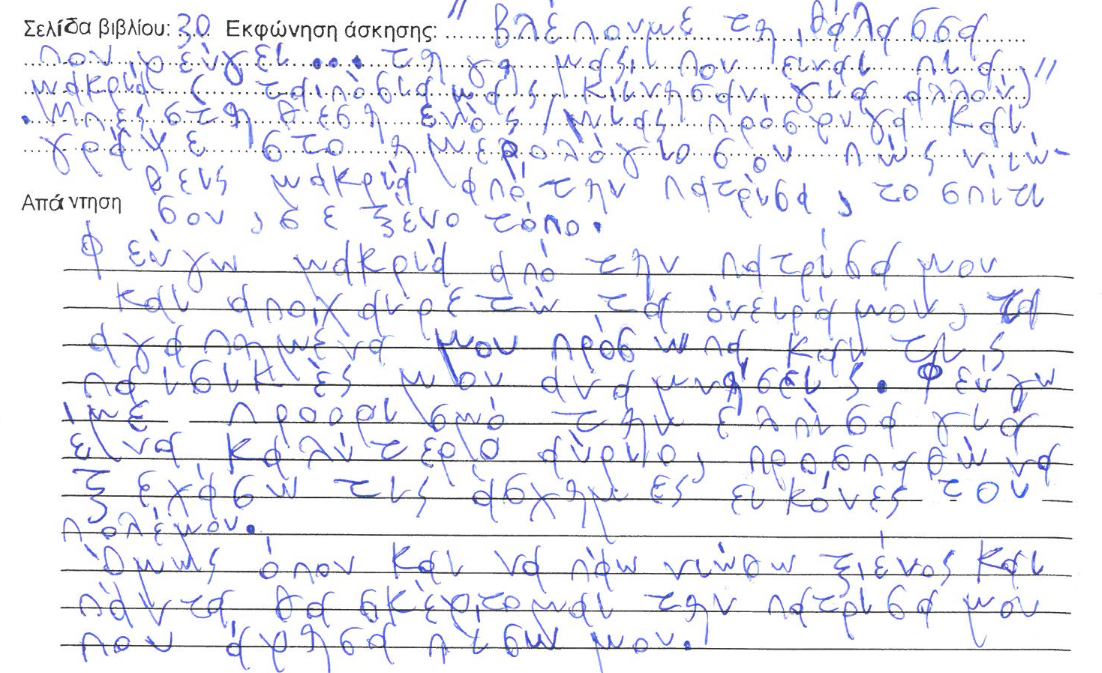 Σελίδα βιβλίου: 30 Εκφώνηση άσκησης: "βλέπουμε τη θάλασσα
που φεύγει... τη γη μας που είναι πια
μακριά ( τα πόδια μας κίνησαν για αλλού)"
. Μπες στη θέση ενός / μιας πρόσφυγα και
γράψε στο ημερολόγιο σου πώς νιώ-
θεις μακριά από την πατρίδα, το σπίτι
Απάντηση σου, σε ξένο τόπο.
Φεύγω μακριά από την πατρίδα μου
και αποχαιρετώ τα όνειρά μου, τα
αγαπημένα μου πρόσωπα και τις
παιδικές μου αναμνήσεις. Φεύγω
με προορισμό την ελπίδα για
ένα καλύτερο αύριο, προσπαθώ να
ξεχάσω τις άσχημες εικόνες του
πολέμου.
Όμως όπου και να πάω νιώθω ξένος και
πάντα θα σκέφτομαι την πατρίδα μου
που άφησα πίσω μου.